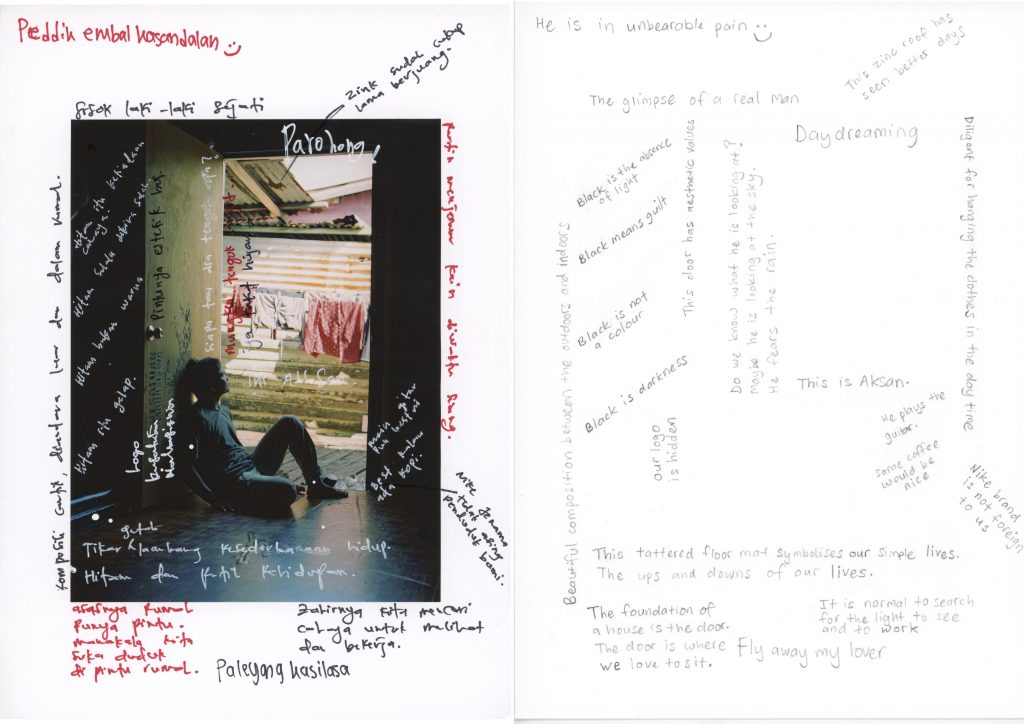 Peddih embal kasandalan
zink sudah cukup
lama berjuang.
sisok laki-laki sejati
Parohong!
komposisi cantik, diantara luar dan dalam rumah.
Hitam itu ketiadaan
cahaya.
Hitam bukan warna
Hitam itu gelap
Pintunya estetik bos.
Logo
siapa tau dia tengok apa?
mungkin tengok langit.
rajin menjemur kain diwaktu siang.
ini
main gitar
Best kalau
ada kopi.
Nike jenama
tidak asing
penduduk bumi.
Tikar
lambang kesederhanaan hidup.
Hitam dan Putih Kehidupan.
asasnya rumah
punya pintu.
manakala kita
suka duduk
di pintu rumah.
Zahirnya kita mencari
cahaya untuk melihat
dan bekerja.
Paleyang kasilasa
He is in unbearable pain
This zinc roof has
seen better days
The glimpse of a real man
Daydreaming
Beautiful composition between the outdoors and indoors
Black is the absence
of light
Black means guilt
Black is not
a colour
Black is darkness
This door has aesthetic values
our logo
is hidden
Do we know what he is looking at?
Maybe he is looking at the sky.
He fears the rain.
Diligent for hanging the clothes in the day time
This is Aksan.
He plays the
guitar.
some coffee
would be
nice
Nike brand
is not foreign
to us
This tattered floor mat symbolises our simple lives.
The ups and downs of our lives.
The foundation of
a house is the door.
The door is where
we love to sit.
It is normal to search
for the light to see
and to work
Fly away my lover